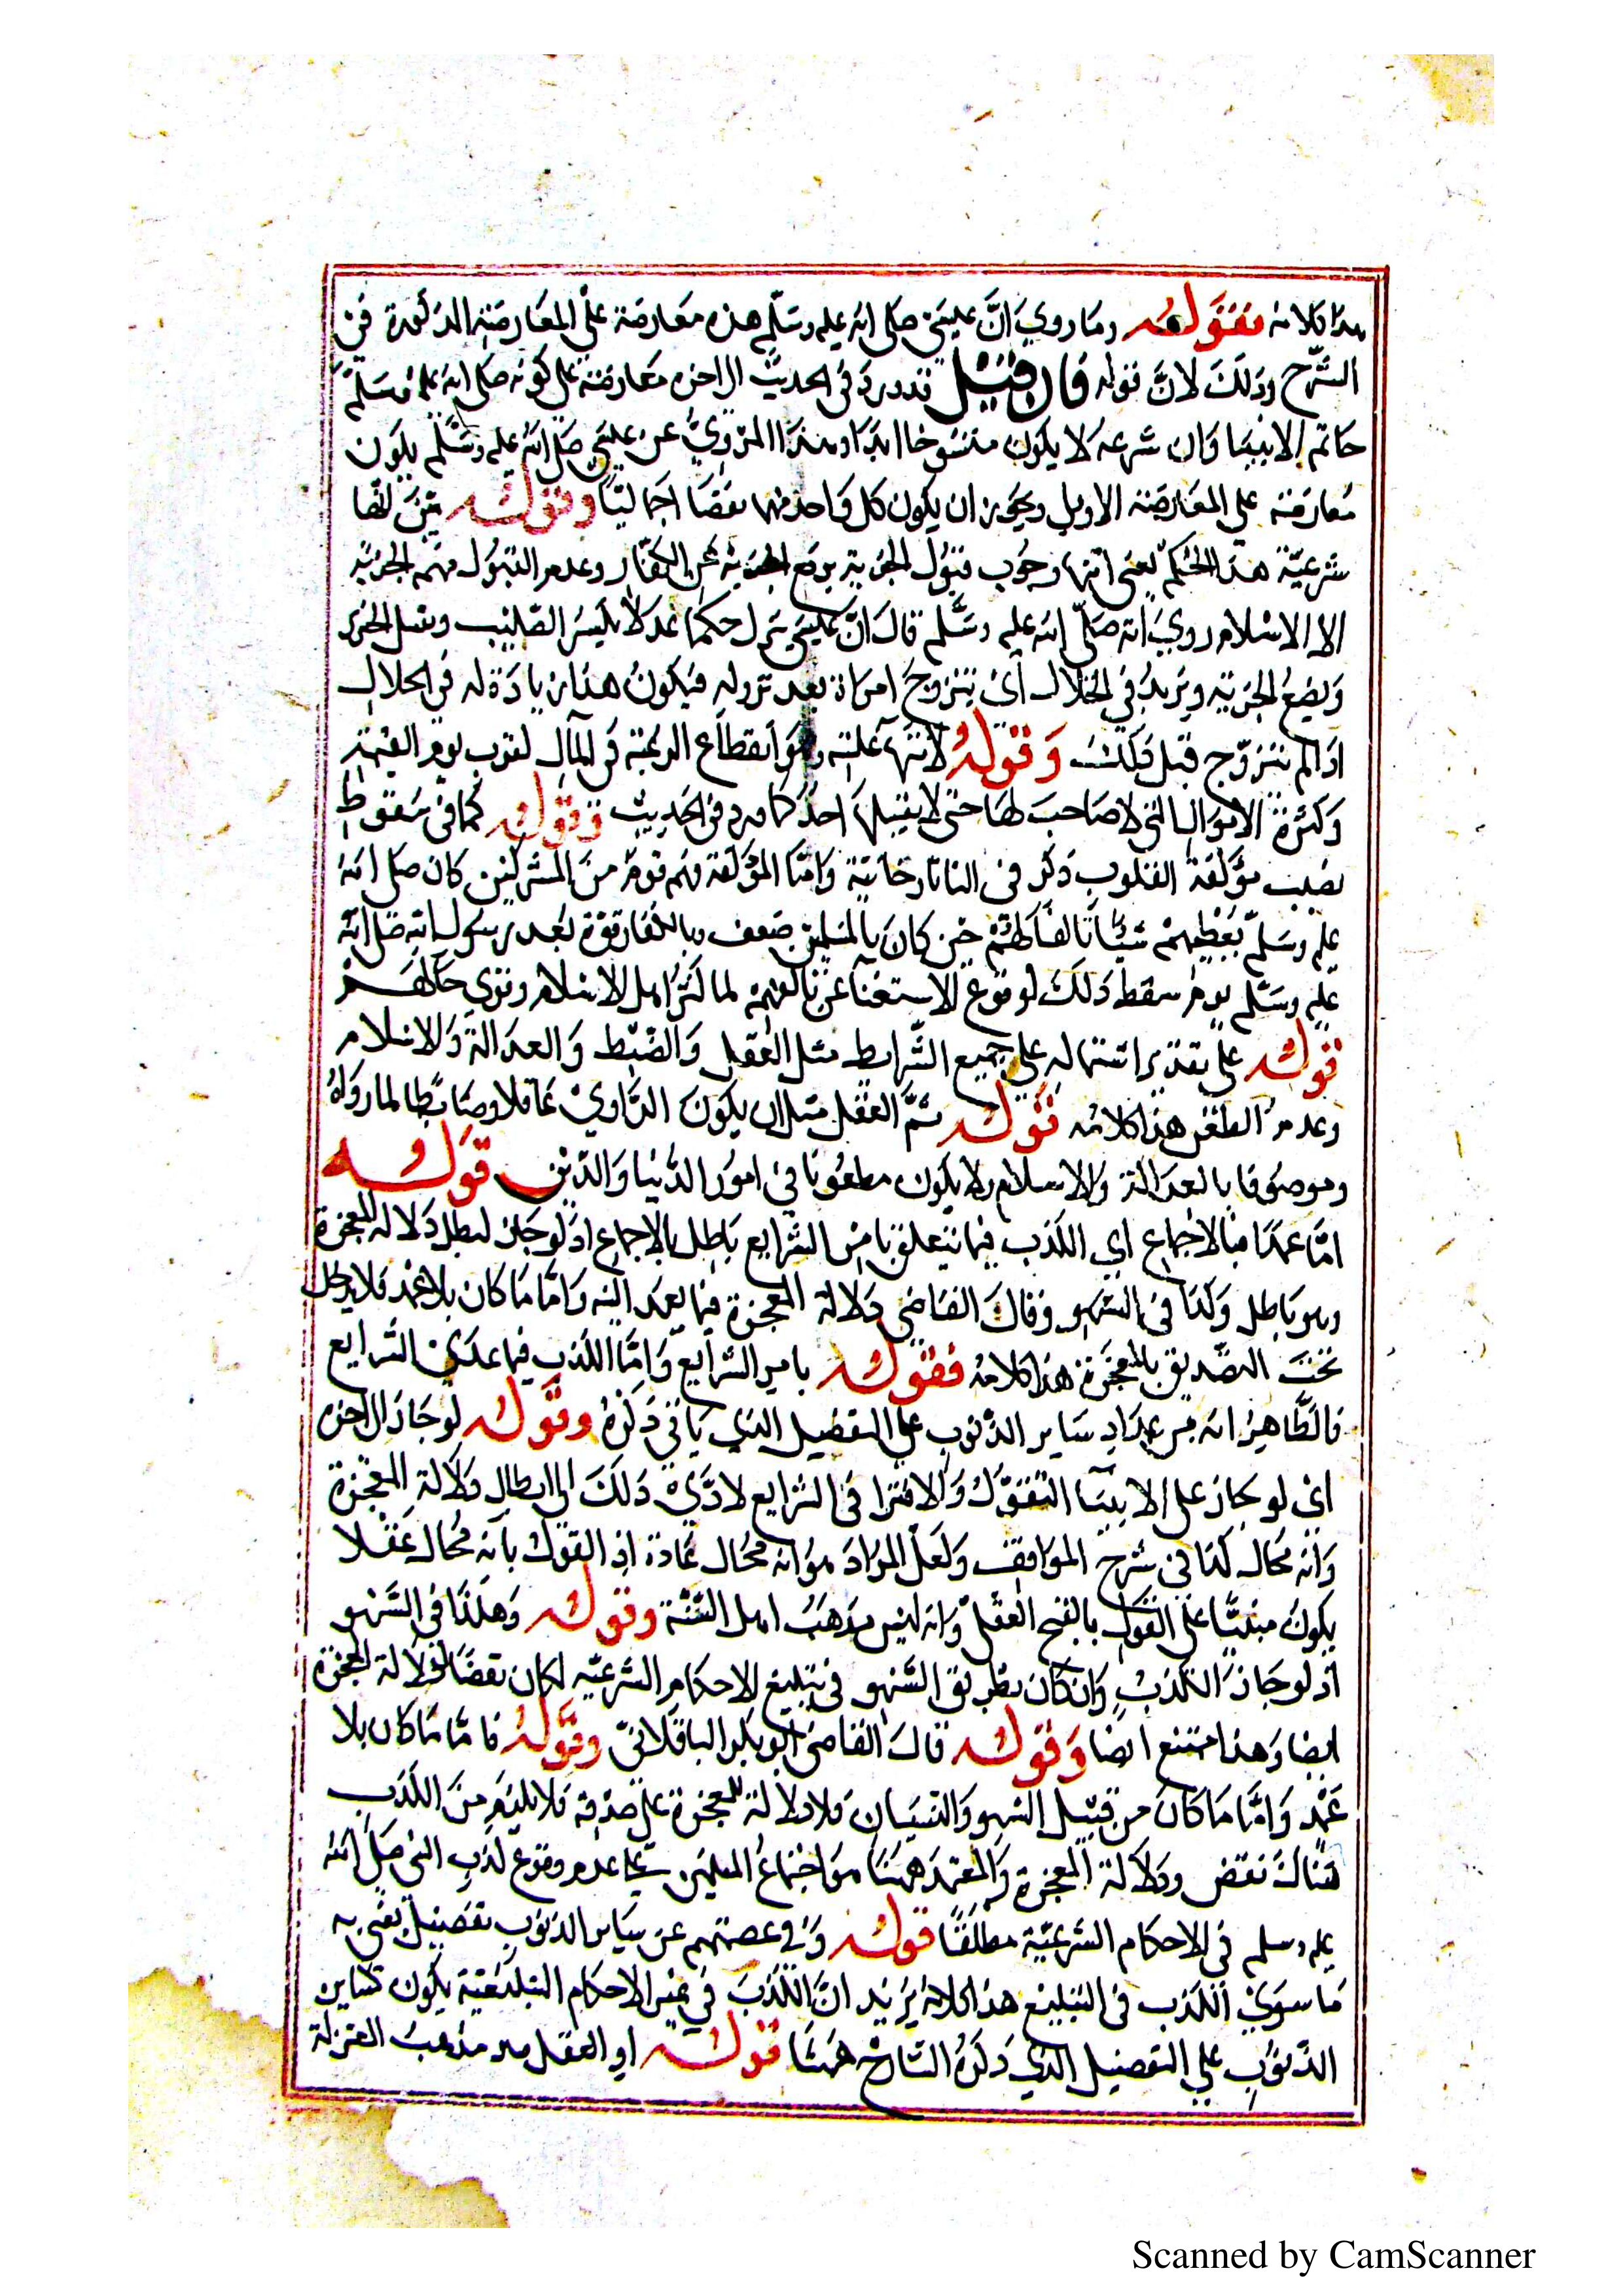 هذا كلامه فقوله وما روي ان عيسى صلى الله عليه وسلم هذه معارضة على المعارضة المذكورة في
الشرح وذلك لان قوله فان قيل قد ورد في الحديث الى اخره معارضة على كونه صلى الله عليه وسلم
خاتم الانبيا وان شرعه لا يكون منسوخا ابدا وهذا المروي عن عيسى صلى الله عليه وسلم يكون
معارضة على المعارضة الاولى ويجوز ان يكون كل واحد منهما نقضا اجماليا وقوله بين انتها
شرعية هذا الحكم يعني انتها وجوب قبول الجزية برفع الجزية عن الكفار وعدم القبول منهم الجزية
الا الاسلام روي انه صلى الله عليه وسلم قال ان عيسى ينزل حكما عدلا يكسر الصليب ويقتل الخنزير
ويضع الجزية ويزيد في الحلال اى يتزوج امراة بعد نزوله فيكون هذا زيادة له في الحلال
اذ لم يتزوج قبل ذلك وقوله لانتهآ علته وهو انقطاع الرغبة في المآل لقرب يوم القيمة
وكثرة الاموال التي لا صاحب لها حتى لا يقبلها احد كما ورد في الحديث وقوله كما في سقوط
نصيب مؤلفة القلوب ذكر في التاتارخانية واما المؤلفة فهم قوم من المشركين كان صلى الله
عليه وسلم يعطيهم شيئا تالفا لهم حين كان بالمسلمين ضعف وبالكفار قوة بعد رسول الله صلى الله
عليه وسلم يوم سقط ذلك لوقوع الاستغنا عن تالفهم لما كثر اهل الاسلام وقوي حالهم
قوله على تقدير اشتماله على جميع الشرايط مثل العقل والضبط والعدالة والاسلام
وعدم الطعن هذا كلامه قوله ثم العقل مثل ان يكون الراوي عاقلا وضابطا لما رواه
وموصوفا بالعدالة والاسلام ولا يكون مطعونا في امور الدنيا والدين قوله
اما عمدا فبالاجماع اي الكذب فيما يتعلق بامر الشرايع باطل بالاجماع اذ لو جاز لبطل دلالة المعجزة
وهو باطل وكذا في السهو وقال القاضي دلالة المعجزة فيما يعمد اليه واما ما كان بلا عمد فلا يدخل
تحت التصديق بالمعجزة هذا كلامه فقوله بامر الشرايع واما الكذب فيما عدى الشرايع
فالظاهر انه من عداد ساير الذنوب على التفصيل الذي ياتي ذكره وقوله لو جاز الى اخره
اى لو جاز على الانبيآ التقول والافترا في الشرايع لادى ذلك الى ابطال دلالة المعجزة
وانه محال كذا في شرح المواقف ولعل المراد هو انه محال عادة اذ القول بانه محال عقلا
يكون مبنيا على القول بالقبح العقلي وانه ليس مذهب اهل السنة وقوله وهكذا في السهو
اذ لو جاز الكذب وان كان بطريق السهو في تبليغ الاحكام الشرعية لكان نقضا لدلالة المعجزة
ايضا وهذا ممتنع ايضا وقوله قال القاضى ابو بكر الباقلاني وقوله فاما ما كان بلا
عمد واما ما كان من قبيل السهو والنسيان فلا دلالة للمعجزة على صدقه فلا يلزم من الكذب
هناك نقض ودلالة المعجزة والمعتمد ههنا هو اجماع المسلمين على عدم وقوع كذب النبي صلى الله
عليه وسلم في الاحكام الشرعية مطلقا قوله وفي عصمتهم عن ساير الذنوب تفصيل يعني به
ما سوى الكذب في التبليغ هذا كلامه يريد ان الكذب في غير الاحكام التبليغية يكون كساير
الذنوب على التفصيل الذي ذكره الشارح ههنا قوله او العقل هو مذهب المعتزلة
Scanned by CamScanner